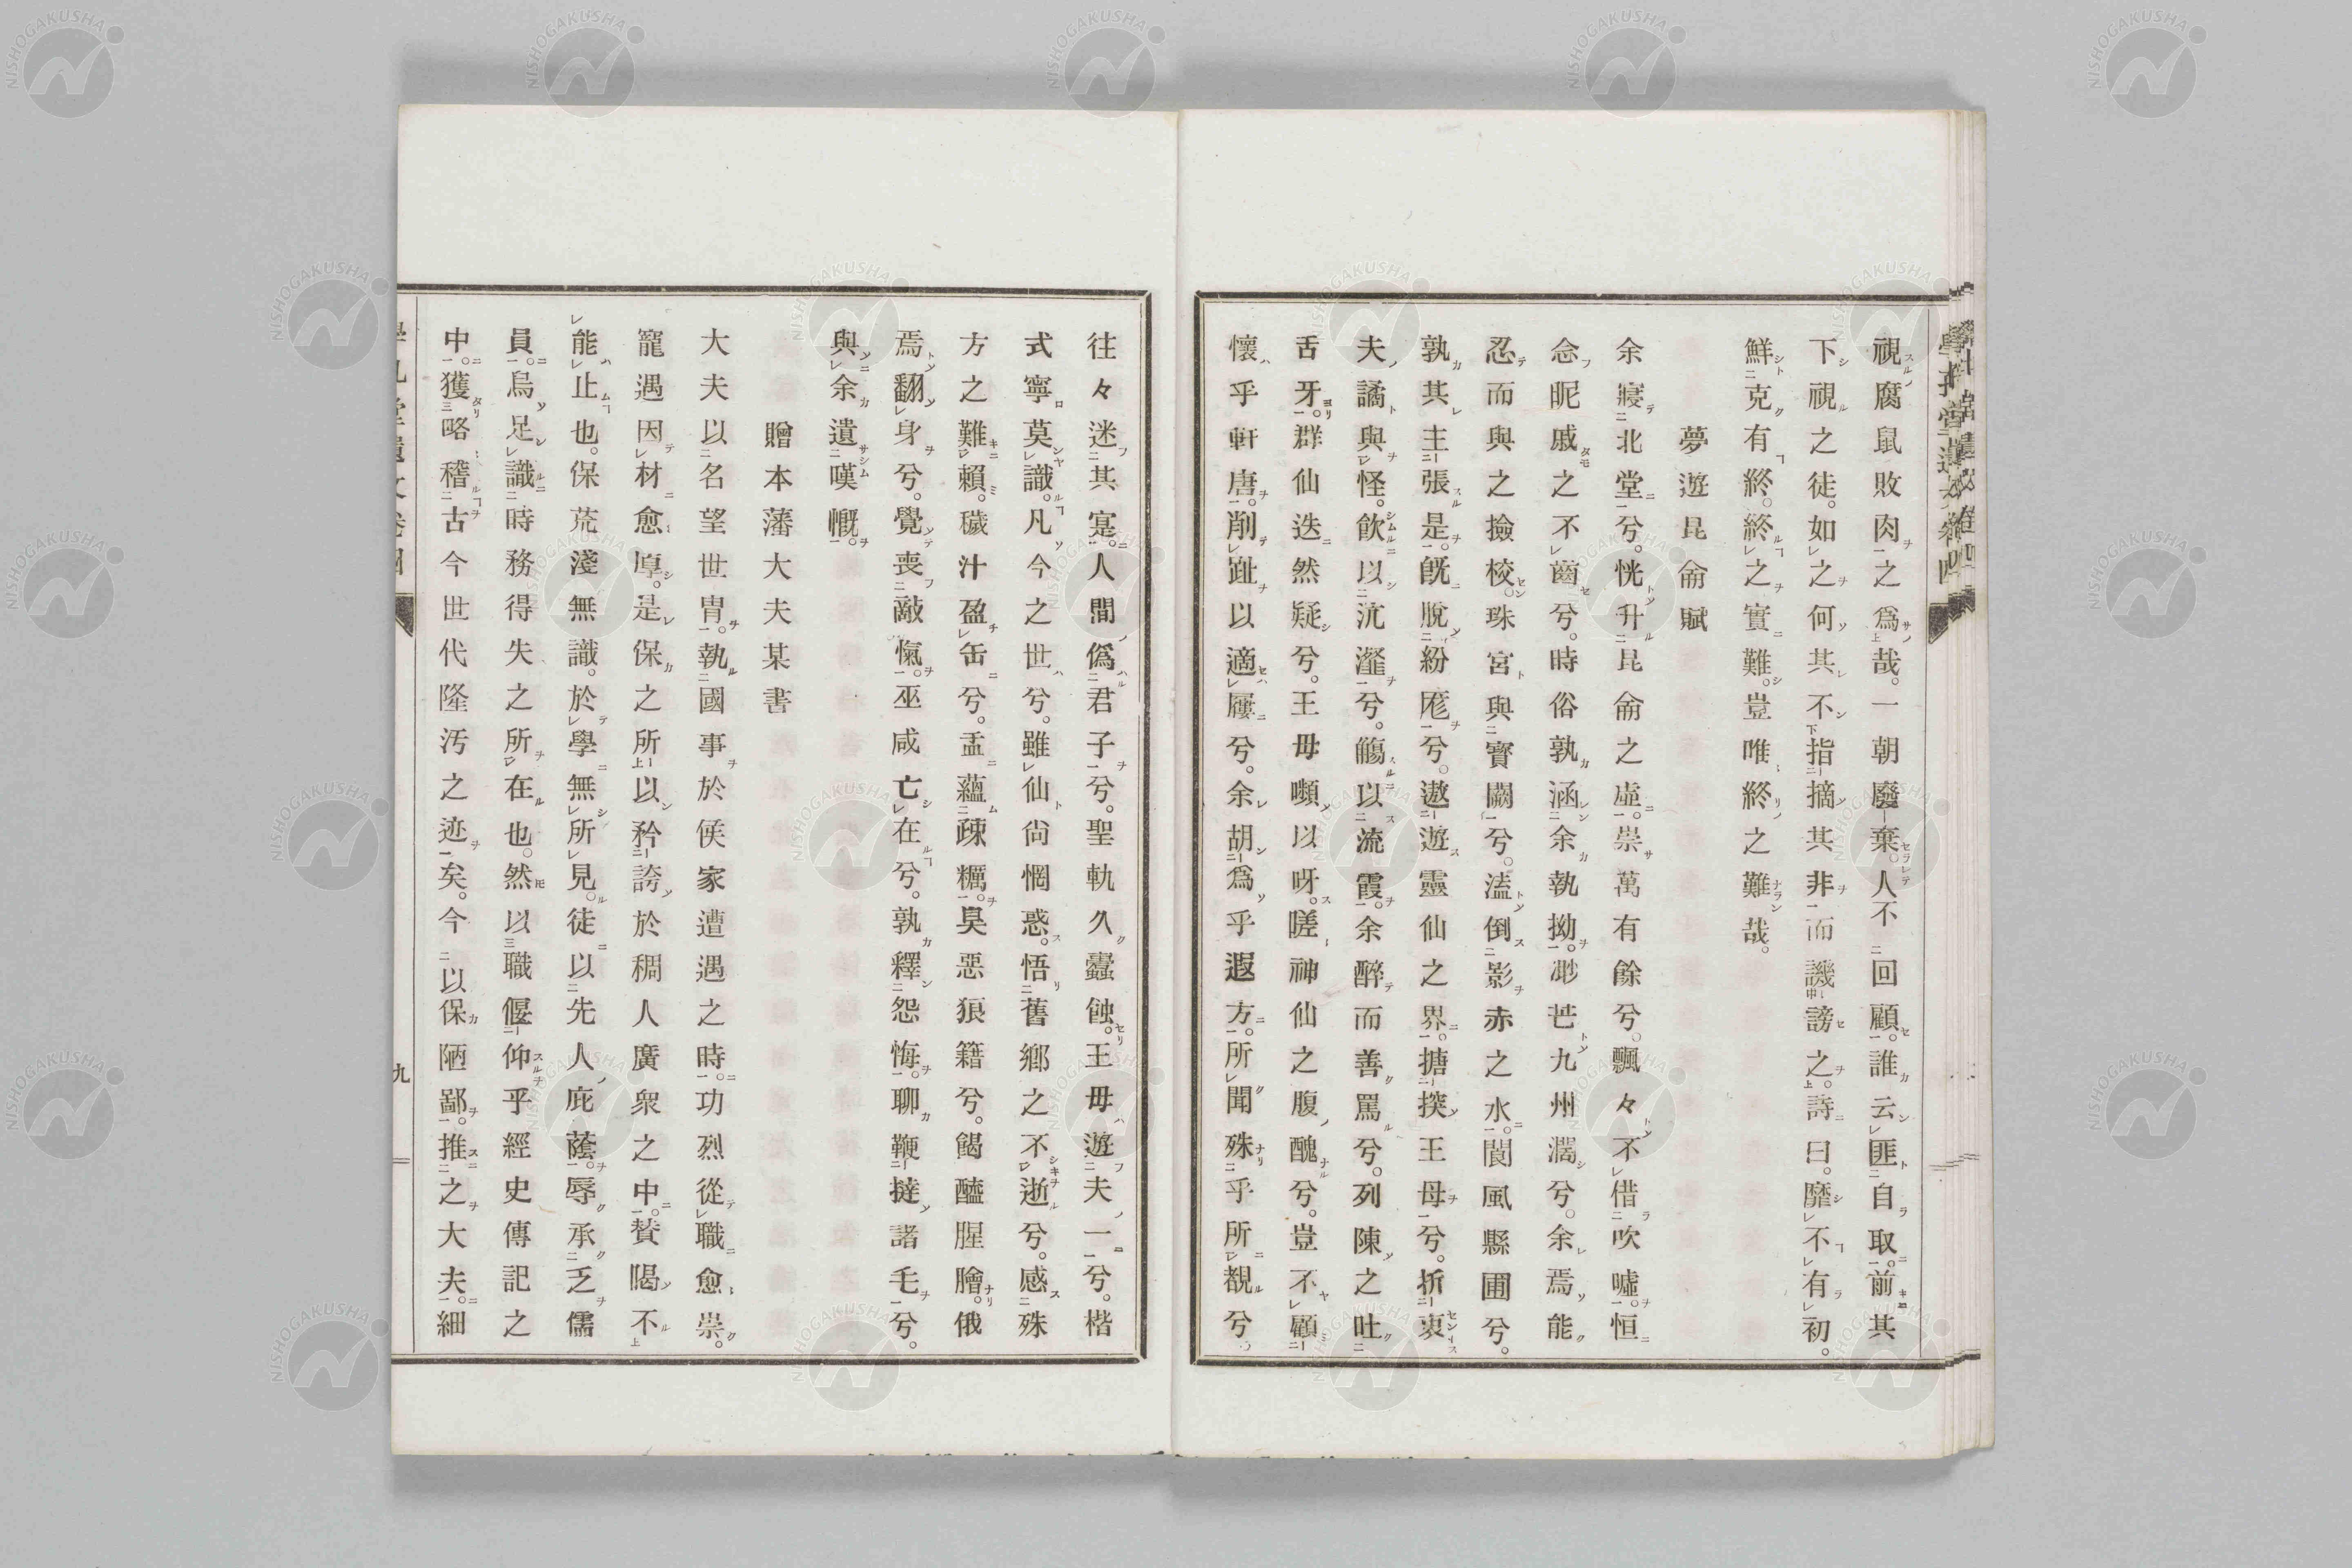 視腐鼠敗肉之爲哉。一朝廢棄。人不回顧。誰云匪自取。前其
下視之徒。如之何其不指摘其非而譏謗之。詩曰。靡不有初。
鮮克有終。終之實難。豈唯終之難哉。
夢遊昆侖賦
余寢北堂兮。恍升昆侖之虛。崇萬有餘兮。飄々不借吹噓。恒
念昵戚之不齒兮。時俗孰涵余執拗。渺芒九州濶兮。余焉能
忍而與之撿校。珠宮與寳闕兮。溘倒影赤之水。閬風縣圃兮。
孰其主張是。旣脫紛厖兮。遨遊靈仙之界。搪揬王母兮。折衷
夫譎與怪。飮以沆瀣兮。觴以流霞。余醉而善罵兮。列陳之吐
舌牙。群仙迭然疑兮。王母嚬以呀。嗟神仙之腹醜兮。豈不顧
懷乎軒唐。削趾以適屨兮。余胡爲乎遐方。所聞殊乎所覩兮。
往々迷其寔。人間僞君子兮。聖軌久蠹蝕。王母遊夫一兮。楷
式寧莫識。凡今之世兮。雖仙尙惘惑。悟舊鄕之不逝兮。感殊
方之難賴。穢汁盈缶兮。盂蘊疎糲。臭惡狼籍兮。餲醯腥膾。俄
焉翻身兮。覺喪敵愾。巫咸亡在兮。孰釋怨悔。聊鞭撻諸毛兮。
與余遺嘆慨。
贈本藩大夫某書
大夫以名望世冑。執國事於侯家遭遇之時。功烈從職愈崇。
寵遇因材愈厚。是保之所以矜誇於稠人廣衆之中。賛陽不
能止也。保荒淺無識。於學無所見。徒以先人庇蔭。辱承乏儒
員。烏足識時務得失之所在也。然以職偃仰乎經史傳記之
中。獲略稽古今世代隆汚之迹矣。今以保陋鄙。推之大夫。細
九